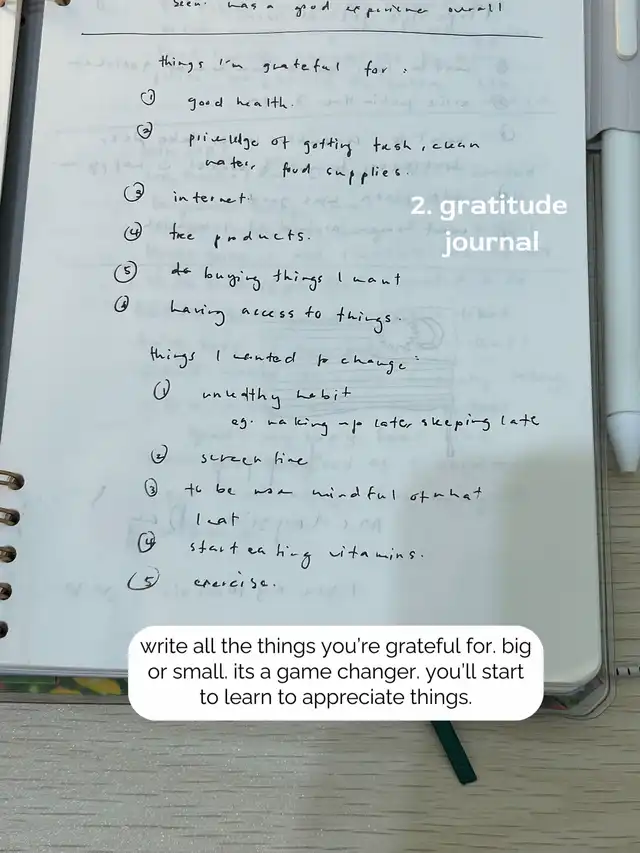 seen. has a good experience overall
things I'm grateful for :
① good health.
② priveledge of getting fresh, clean
water, food supplies.
③ internet.
④ free products.
⑤ buying things I want
⑥ having access to things.
2. gratitude
journal
things I wanted to change:
① unhealthy habit
eg. waking up late, sleeping late
② screen time
③ to be more mindful of what
I eat
④ start eating vitamins.
⑤ exercise.
write all the things you're grateful for. big
or small. its a game changer. you'll start
to learn to appreciate things.